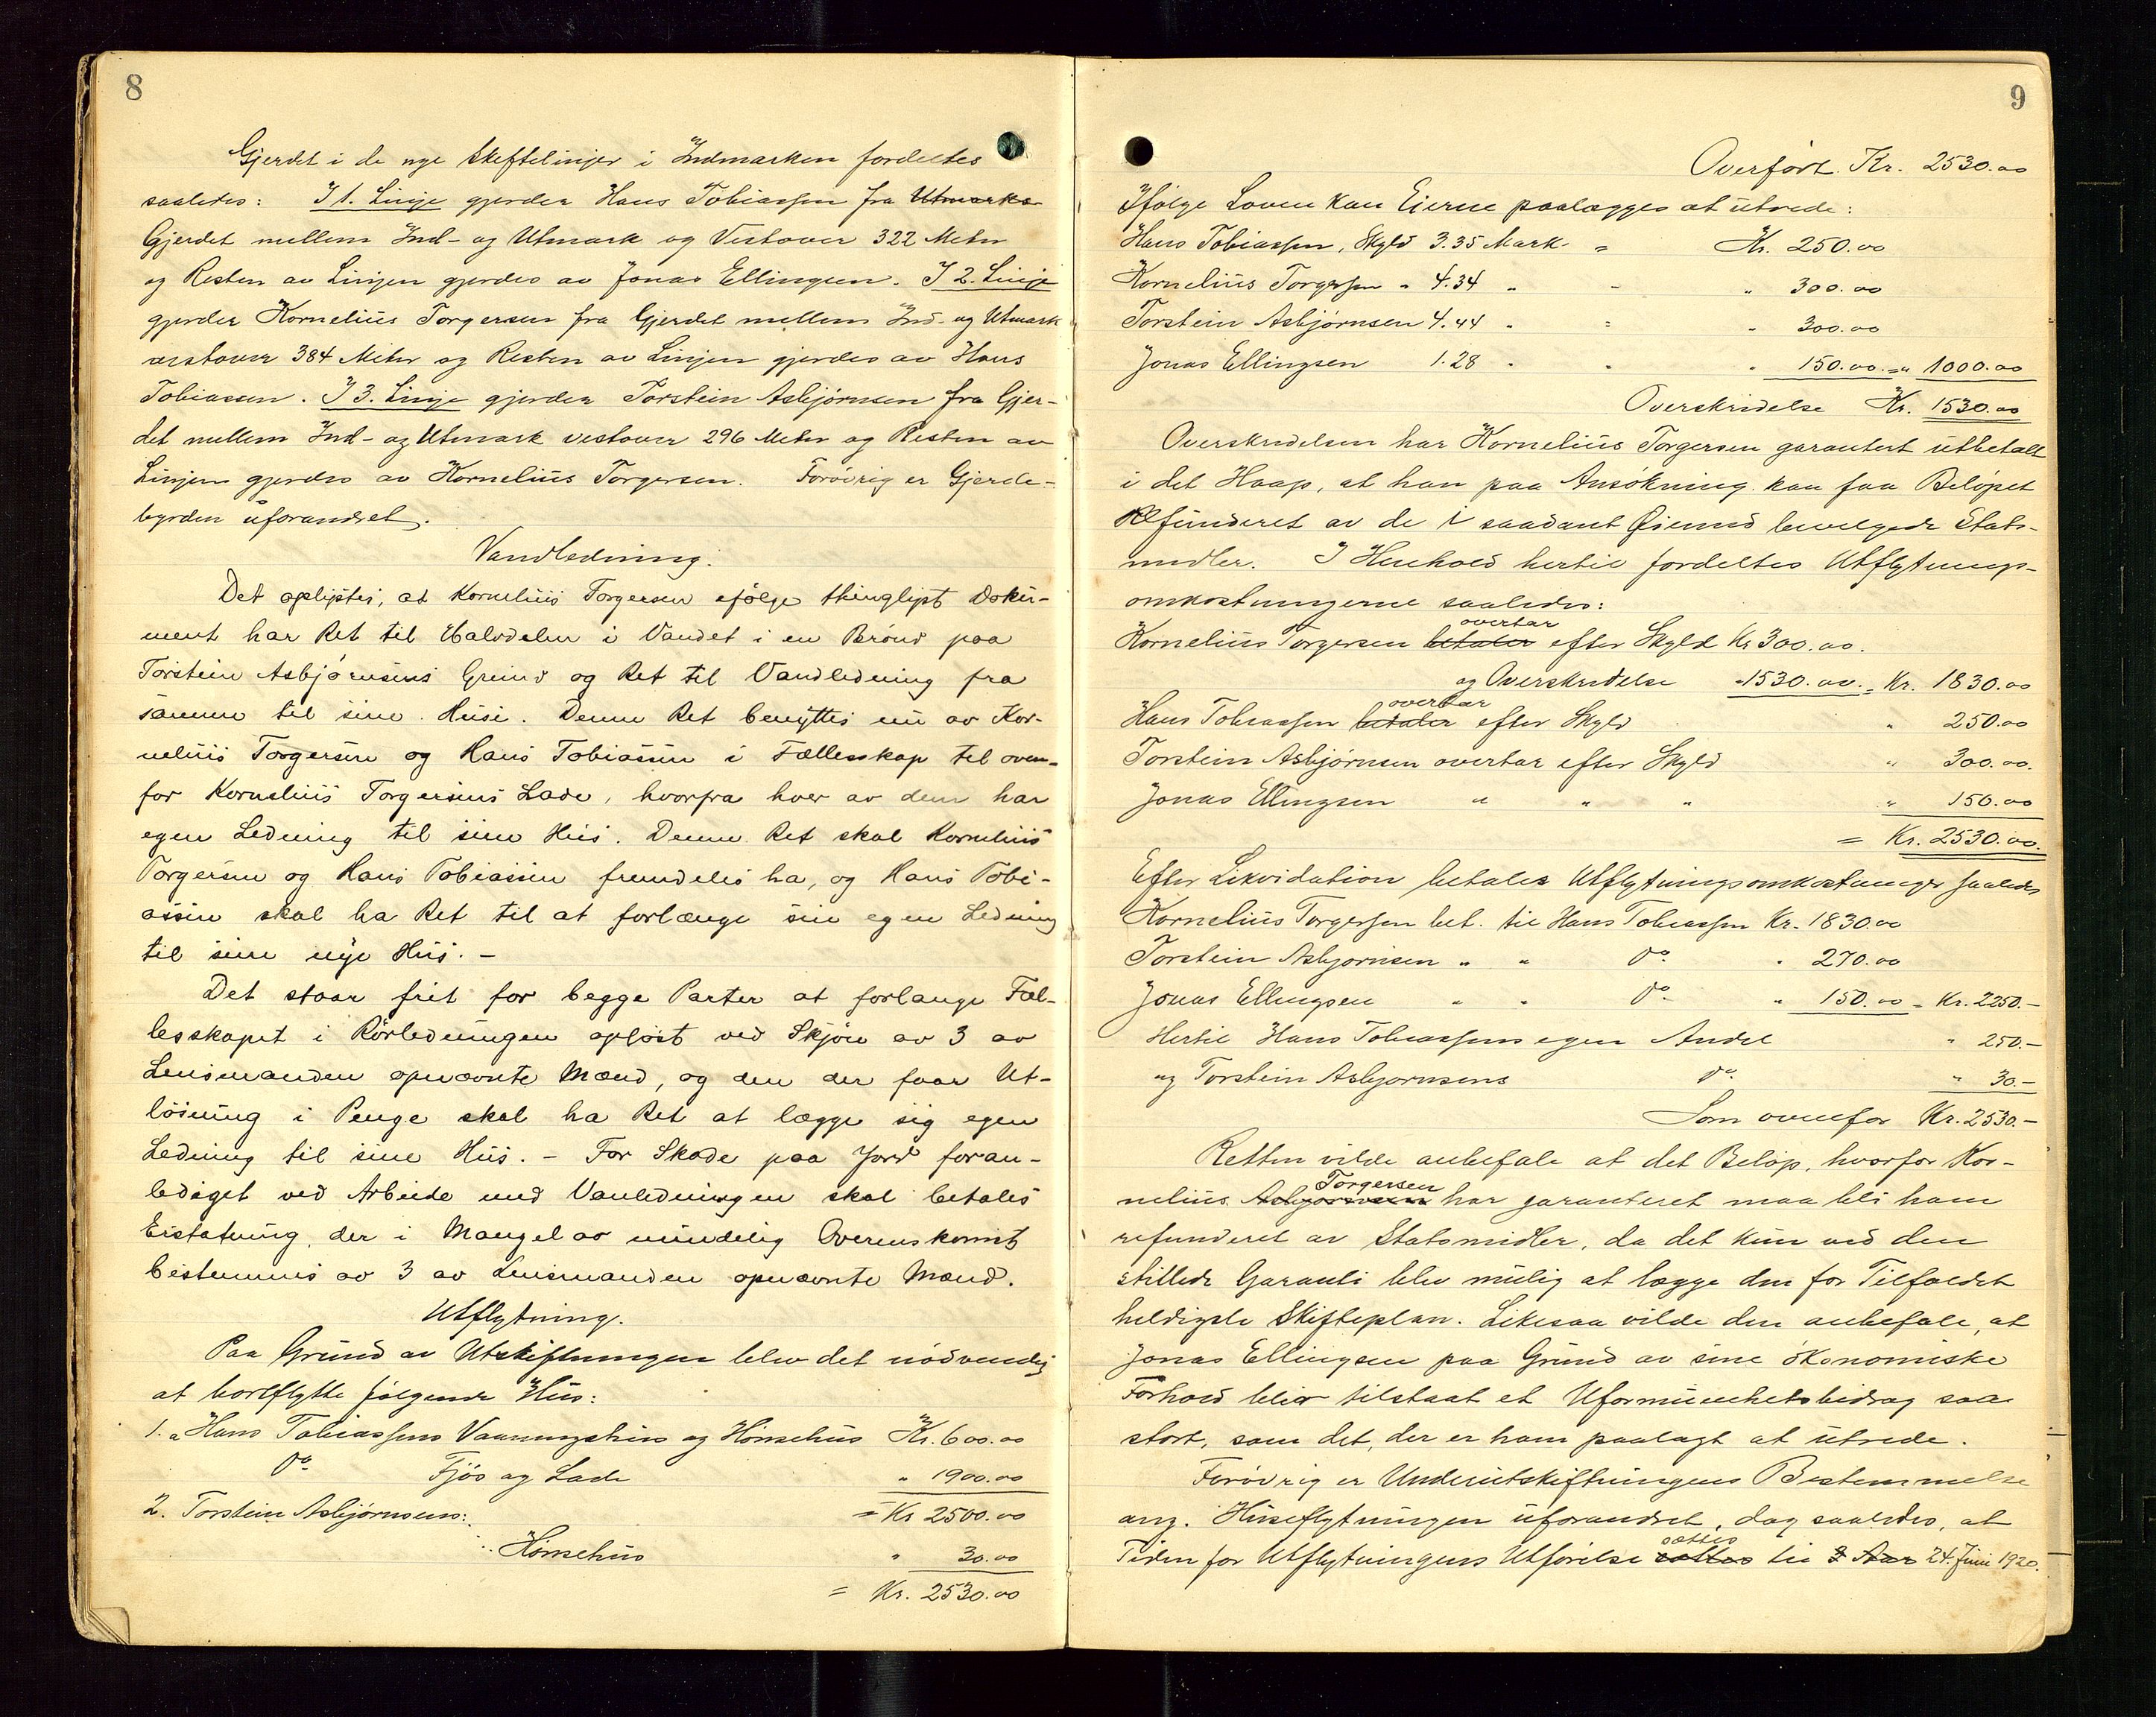 8
Gjerdet i de nye Skiftelinjer i Indmarken fordeltes
saaledes: I 1. Linje gjerder Hans Tobiassen fra Utmarks
Gjerdet mellem Ind- og Utmark og Vestover 322 Meter
og Resten av Linjen gjerdes av Jonas Ellingsen. I 2. Linje
gjerder Kornelius Torgersen fra Gjerdet mellem Ind- og Utmark
vestover 384 Meter og Resten av Linjen gjerdes av Hans
Tobiassen. I 3. Linje gjerder Torstein Asbjørnsen fra Gjer-
det mellem Ind- og Utmark vestover 296 Meter og Resten av
Linjen gjerdes av Kornelius Torgersen. Forøvrig er Gjerde-
byrden uforandret.
Vandledning.
Det oplystes, at Kornelius Torgersen ifølge thinglyst Doku-
ment har Ret til Halvdelen i Vandet i en Brønd paa
Torstein Asbjørnsens Grund og Ret til Vandledning fra
samme til sine Huse. Denne Ret benyttes nu av Kor-
nelius Torgersen og Hans Tobiassen i Fællesskap til oven-
for Kornelius Torgersens Lade, hvorfra hver av dem har
egen Ledning til sine Hus. Denne Ret skal Kornelius
Torgersen og Hans Tobiassen fremdeles ha, og Hans Tobi-
assen skal ha Ret til at forlænge sin egen Ledning
til sine nye Hus. -
Det staar frit for begge Parter at forlange Fæl-
lesskapet i Rørledningen opløst ved Skjøn av 3 av
Lensmanden opnævnte Mænd, og den der faar Ut-
løsning i Penge skal ha Ret at lægge sig egen
Ledning til sine Hus. - For Skade paa Jord foran-
lediget ved Arbeide med Vanledningen skal betales
Erstatning, der i Mangel av mindelig Overenskomst
bestemmes av 3 av Lensmanden opnævnte Mænd.
Utflytning.
Paa Grund av Utskiftningen blev det nødvendig
at bortflytte følgende Hus:
1. a Hans Tobiassens Vaaningshus og Hønsehus Kr. 600.00
do Fjøs og Lade " 1900.00
2. Torstein Asbjørnsens: = Kr 2500.00
Hønsehus " 30.00
= Kr. 2530.00
9
Overført Kr. 2530.00
Ifølge Loven kan Eierne paalægges at utrede:
Hans Tobiassen, Skyld 3.35 Mark = Kr. 250.00
Kornelius Torgersen " 4.34 " - " 300.00
Torstein Asbjørnsen 4.44 " = " 300.00
Jonas Ellingsen 1.28 " " " 150.00 = " 1000.00
Overskridelse Kr. 1530.00
Overskridelsen har Kornelius Torgersen garantert utbetalt
i det Haap, at han paa Ansøkning kan faa Beløpet
refunderet av de i saadant Øiemed bevilgede Stats-
midler. I Henhold hertil fordeltes Utflytnings-
omkostningerne saaledes:
overtar
Kornelius Torgersen betaler efter Skyld Kr 300.00.
og Overskridelse " 1530.00 = Kr. 1830.00
overtar
Hans Tobiassen betaler efter Skyld " 250.00
Torstein Asbjørnsen overtar efter Skyld " 300.00.
Jonas Ellingsen " " " " 150.00
= Kr. 2530.00.
Efter Likvidation betales Utflytningsomkostninger saaledes
Kornelius Torgersen bet. til Hans Tobiassen Kr. 1830.00
Torstein Asbjørnsen " " do " 270.00
Jonas Ellingsen " " do " 150.00 = Kr. 2250.-
Hertil Hans Tobiassens egen Andel " 250.-
og Torstein Asbjørnsens do " 30.-
Som ovenfor Kr. 2530.-
Retten vilde anbefale at det Beløp, hvorfor Kor-
Torgersen
nelius Asbjørnsen har garanteret maa bli ham
refunderet av Statsmidler, da det kun ved den
stillede Garanti blev mulig at lægge den for Tilfældet
heldigste Skifteplan. Likesaa vilde den anbefale, at
Jonas Ellingsen paa Grund av sine økonomiske
Forhold blir tilstaat et Uformuenhetsbidrag saa
stort, som det, der er ham paalagt at utrede.
Forøvrig er Underutskiftningens Bestemmelse
ang. Huseflytningen uforandret, dog saaledes, at
sættes
Tiden for Utflytningens Utførelse sættes til 2 Aar 24. Juni 1920.